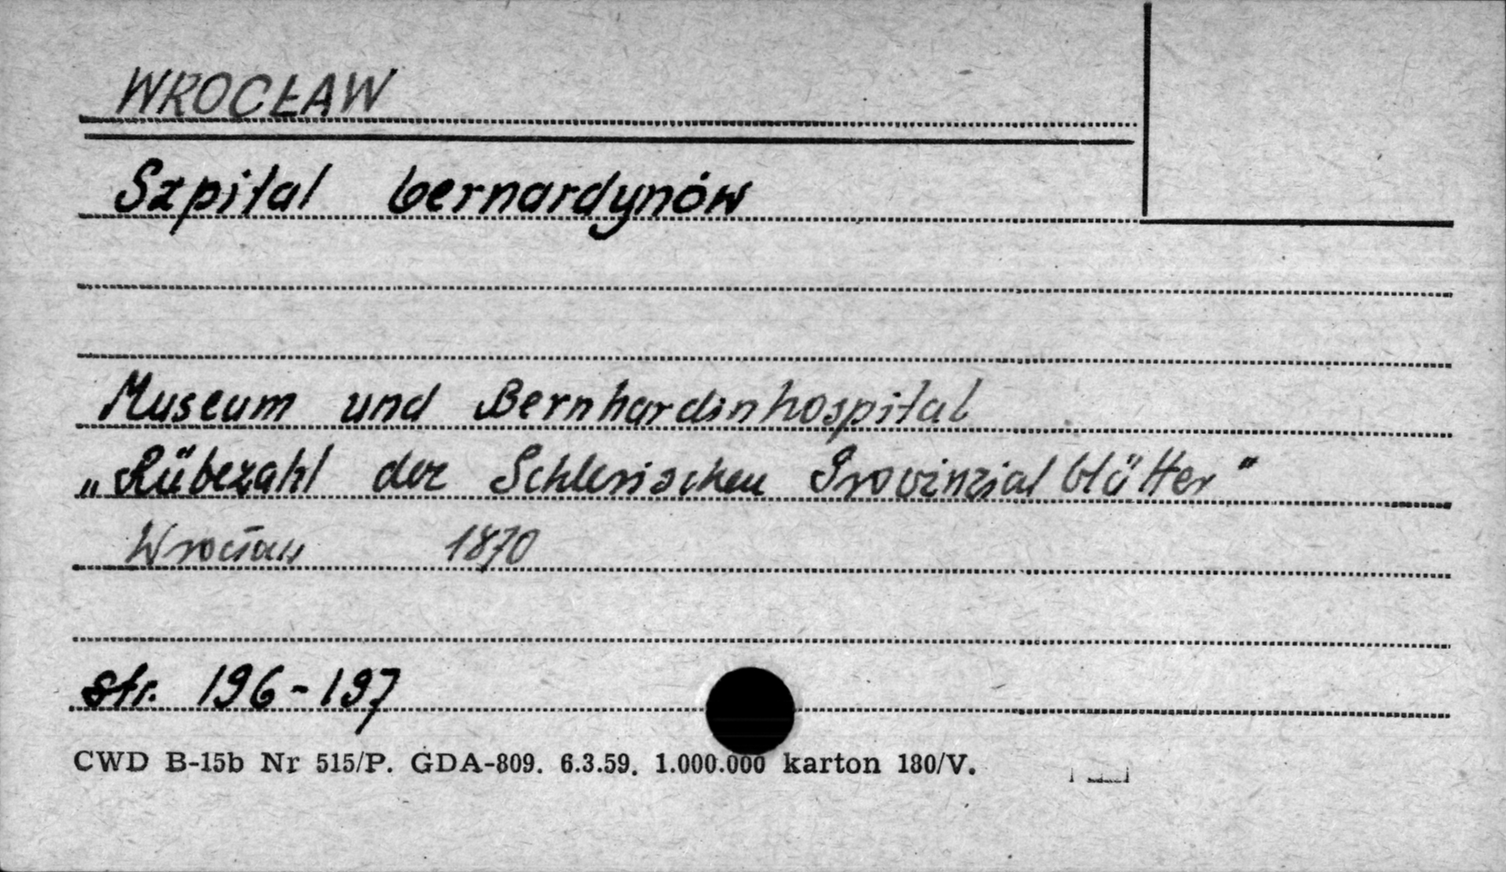 WROCŁAW
Szpital bernardynów
Museum und Bernhardinhospital
„Rübezahl der Schlesischen Provinzialblätter"
Wrocław 1870
str. 196-197
CWD B-15b Nr 515/P. GDA-809. 6.3.59. 1.000.000 karton 180/V.